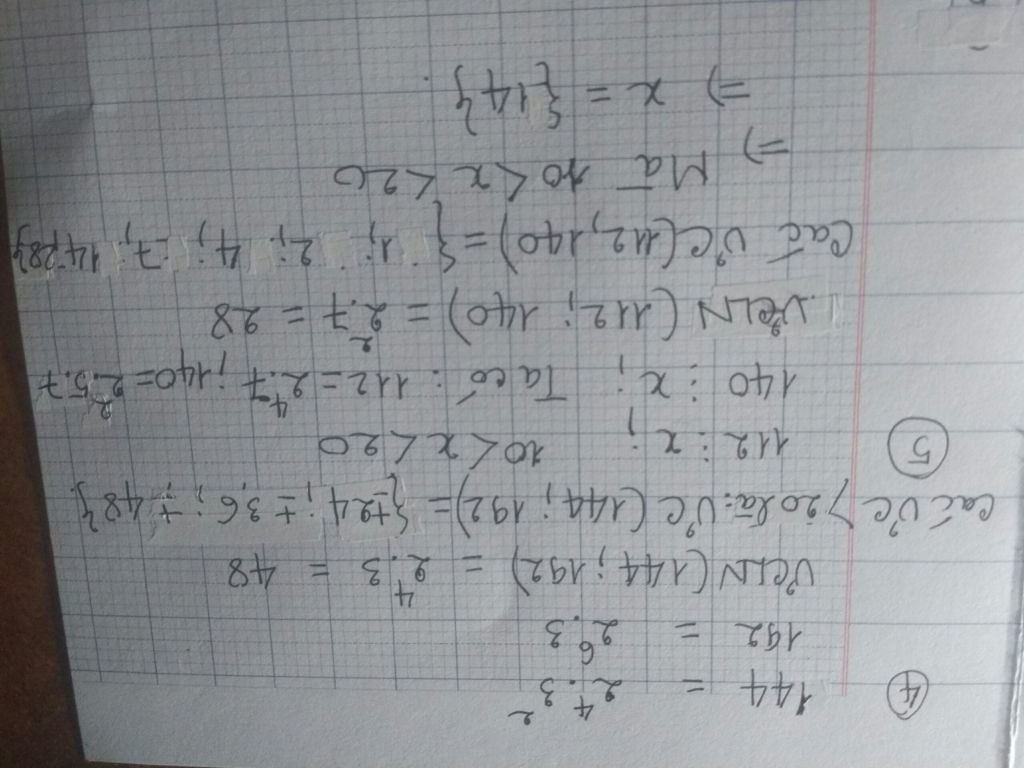 ④ 144 = 2⁴.3²
192 = 2⁶.3
ƯCLN (144 ; 192) = 2⁴.3 = 48
Các ƯC > 20 là: ƯC (144 ; 192) = {±24 ; ± 36 ; ± 48}.
⑤ 112 ⋮ x ; 10 < x < 20
140 ⋮ x ; Ta có : 112 = 2⁴.7 ; 140 = 2².5.7
ƯCLN (112 ; 140) = 2².7 = 28
Các ƯC (112, 140) = {1; 2; 4; 7; 14; 28}
=> Mà 10 < x < 20
=> x = {14}.